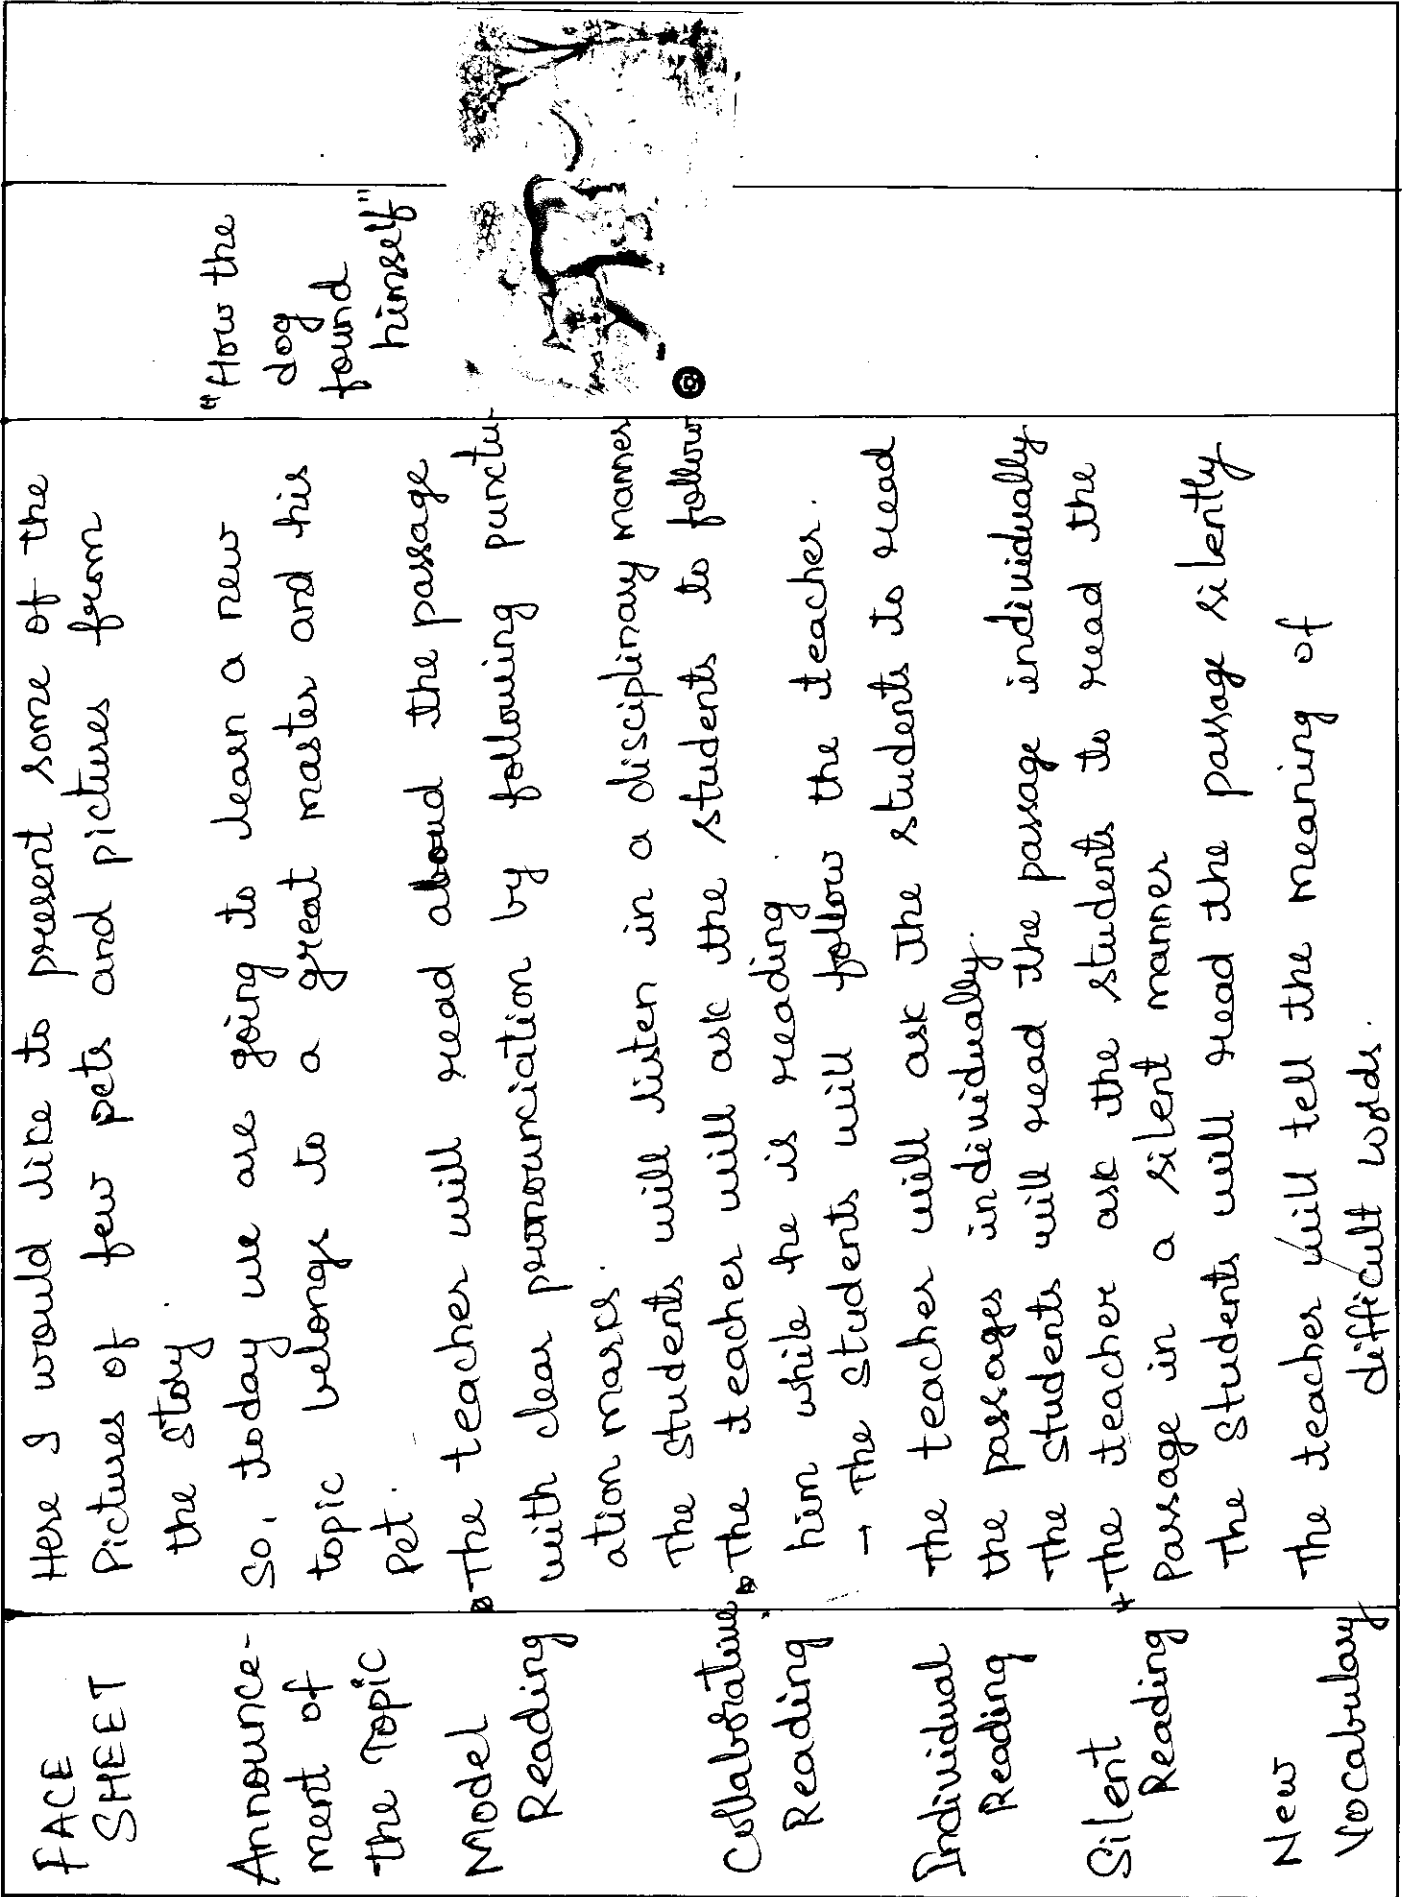 FACE
SHEET
Here I would like to present some of the
Pictures of few pets and pictures from
the story.
Announce-
ment of
the Topic
So, today we are going to learn a new
topic belongs to a great master and his
Pet.
"How the
dog
found
himself"
Model
Reading
The teacher will read aloud the passage
with clear pronounciation by following punctu-
ation marks.
The students will listen in a disciplinary manner
Collaborative
Reading
The teacher will ask the students to follow
him while he is reading.
→ The students will follow the teacher.
Individual
Reading
The teacher will ask the students to read
the passages individually.
The students will read the passage individually
Silent
Reading
The teacher ask the students to read the
Passage in a silent manner
The students will read the passage silently
New
Vocabulary
The teacher will tell the meaning of
difficult words.